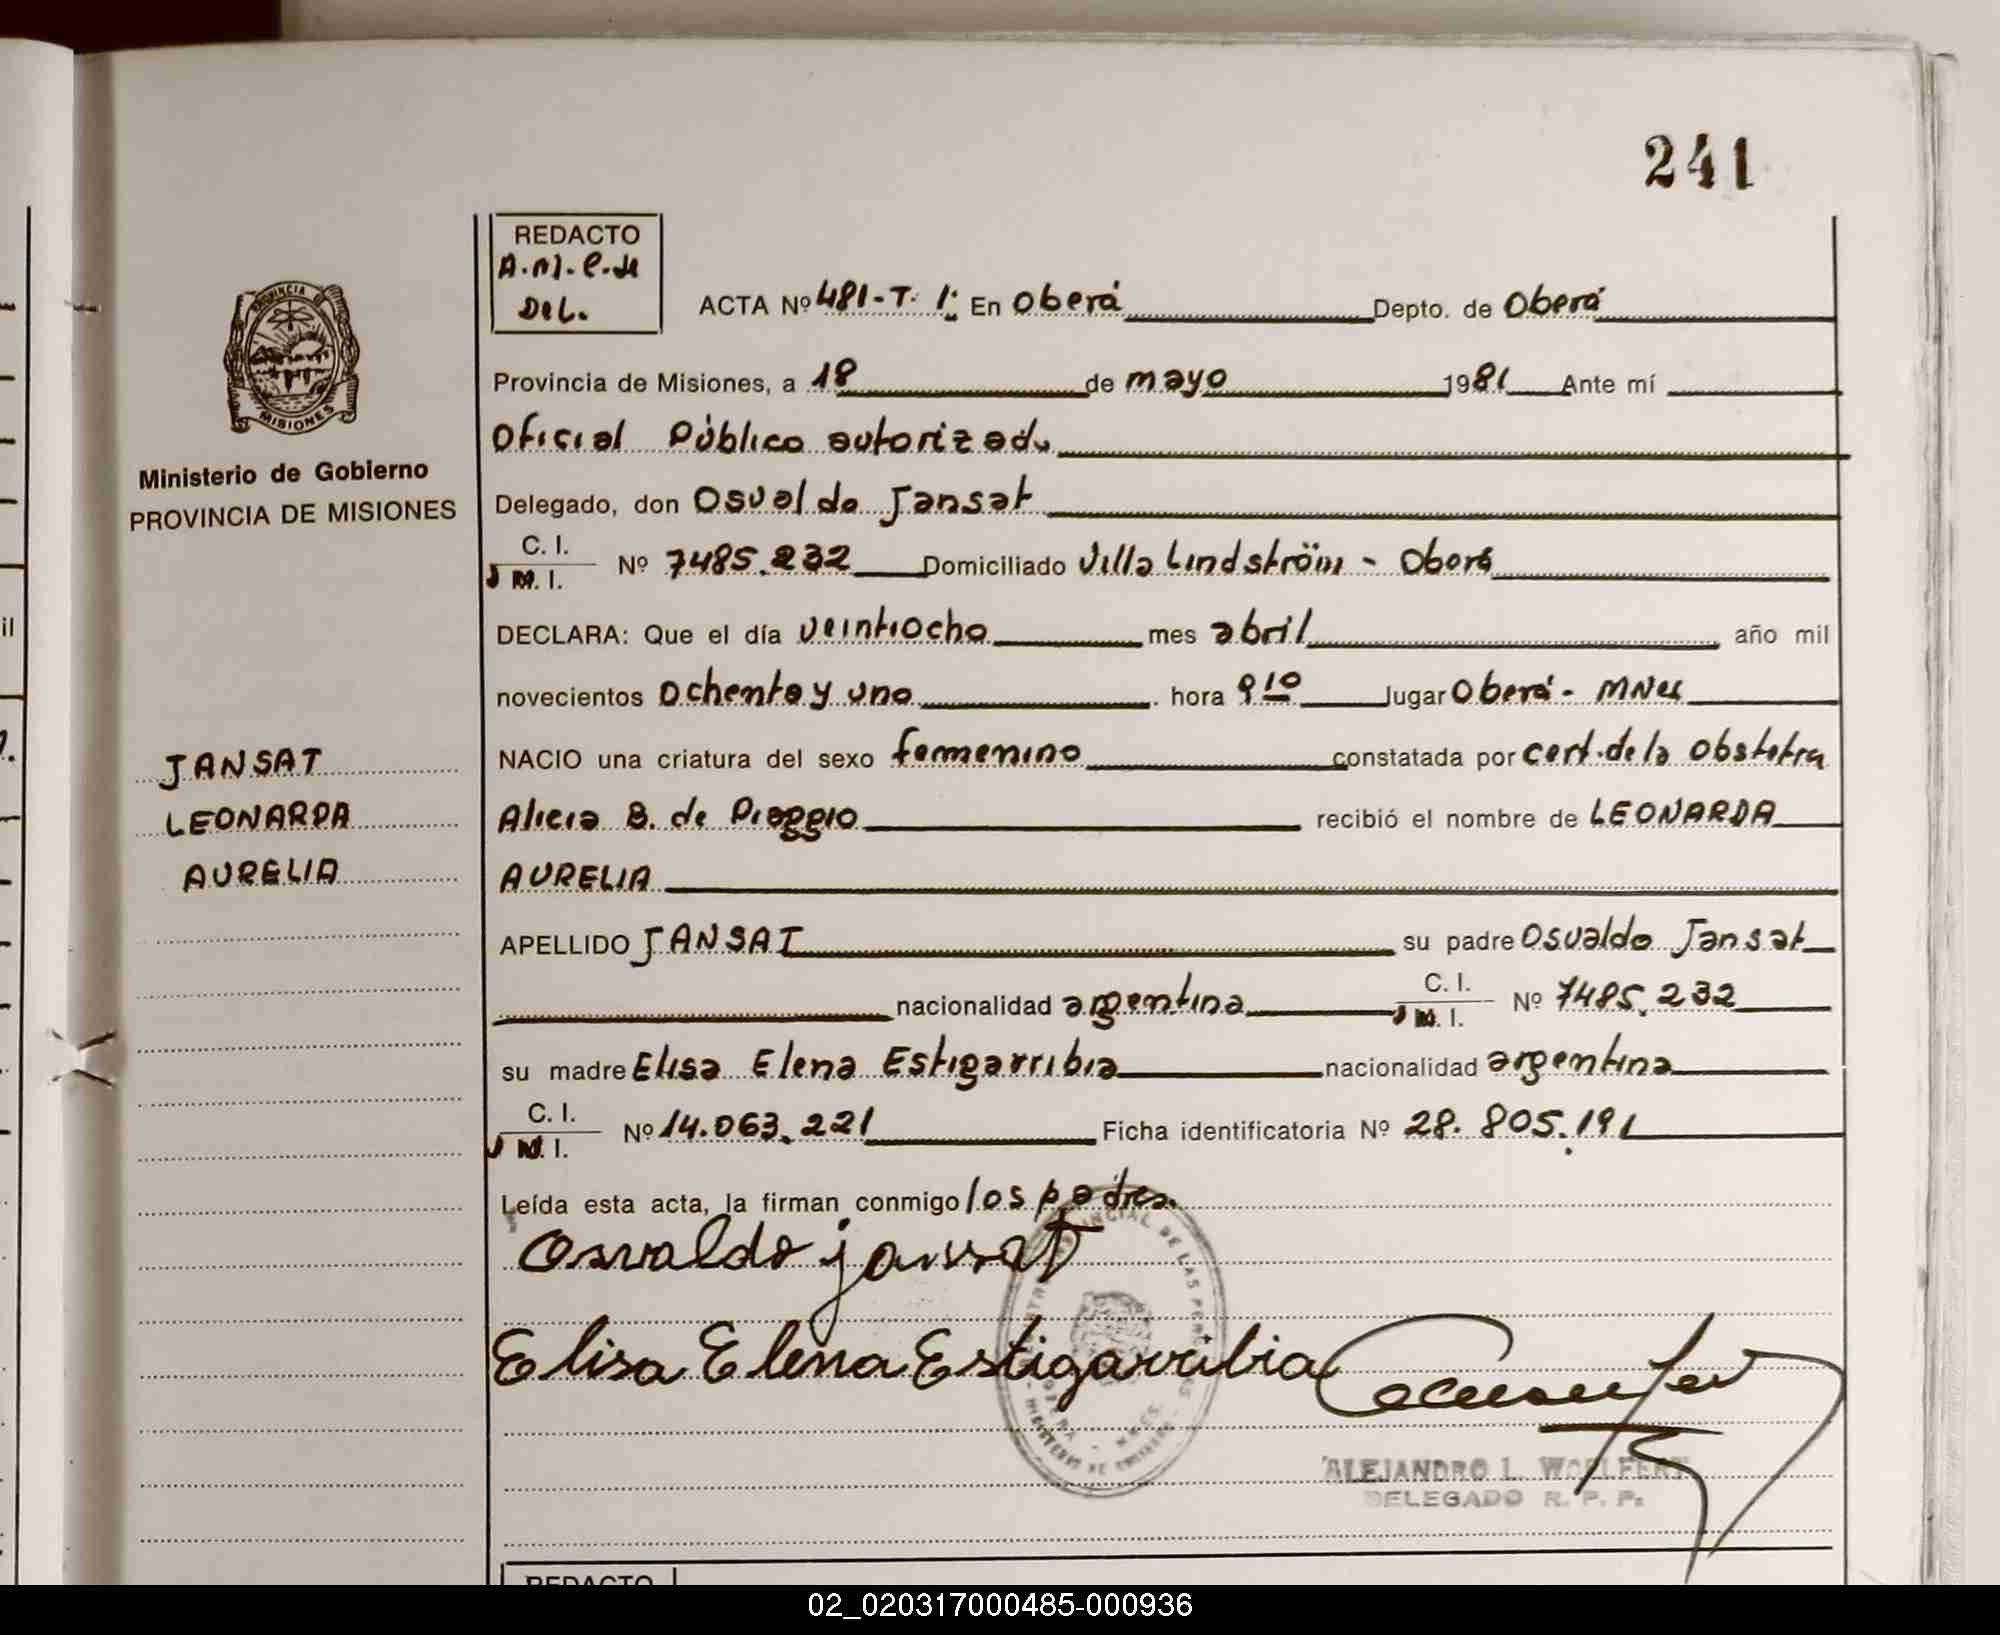 241
REDACTO
A.M.E. de
Del.
ACTA Nº 481-T. 1: En Oberá Depto. de Oberá
Provincia de Misiones, a 18 de mayo 1981 Ante mí
Oficial Público autorizado
Delegado, don Osvaldo Jansat
C. I.
M. I. Nº 7485.232 Domiciliado Villa Lindström - Oberá
DECLARA: Que el día veintiocho mes abril año mil
novecientos ochenta y uno hora 9 10 lugar Oberá - MNes
NACIO una criatura del sexo femenino constatada por cert. de la Obstetra
Alicia B. de Pioggio recibió el nombre de LEONARDA
AURELIA
APELLIDO JANSAT su padre Osvaldo Jansat
nacionalidad argentina C. I.
M. I. Nº 7485.232
su madre Elisa Elena Estigarribia nacionalidad argentina
C. I.
M. I. Nº 14.063.221 Ficha identificatoria Nº 28.805.191
Leída esta acta, la firman conmigo los padres.
Osvaldo jansat
Elisa Elena Estigarribia
ALEJANDRO L. WOELFERT
DELEGADO R. P. P.
PROVINCIA
MISIONES
Ministerio de Gobierno
PROVINCIA DE MISIONES
JANSAT
LEONARDA
AURELIA
il
REDACTO
02_020317000485-000936